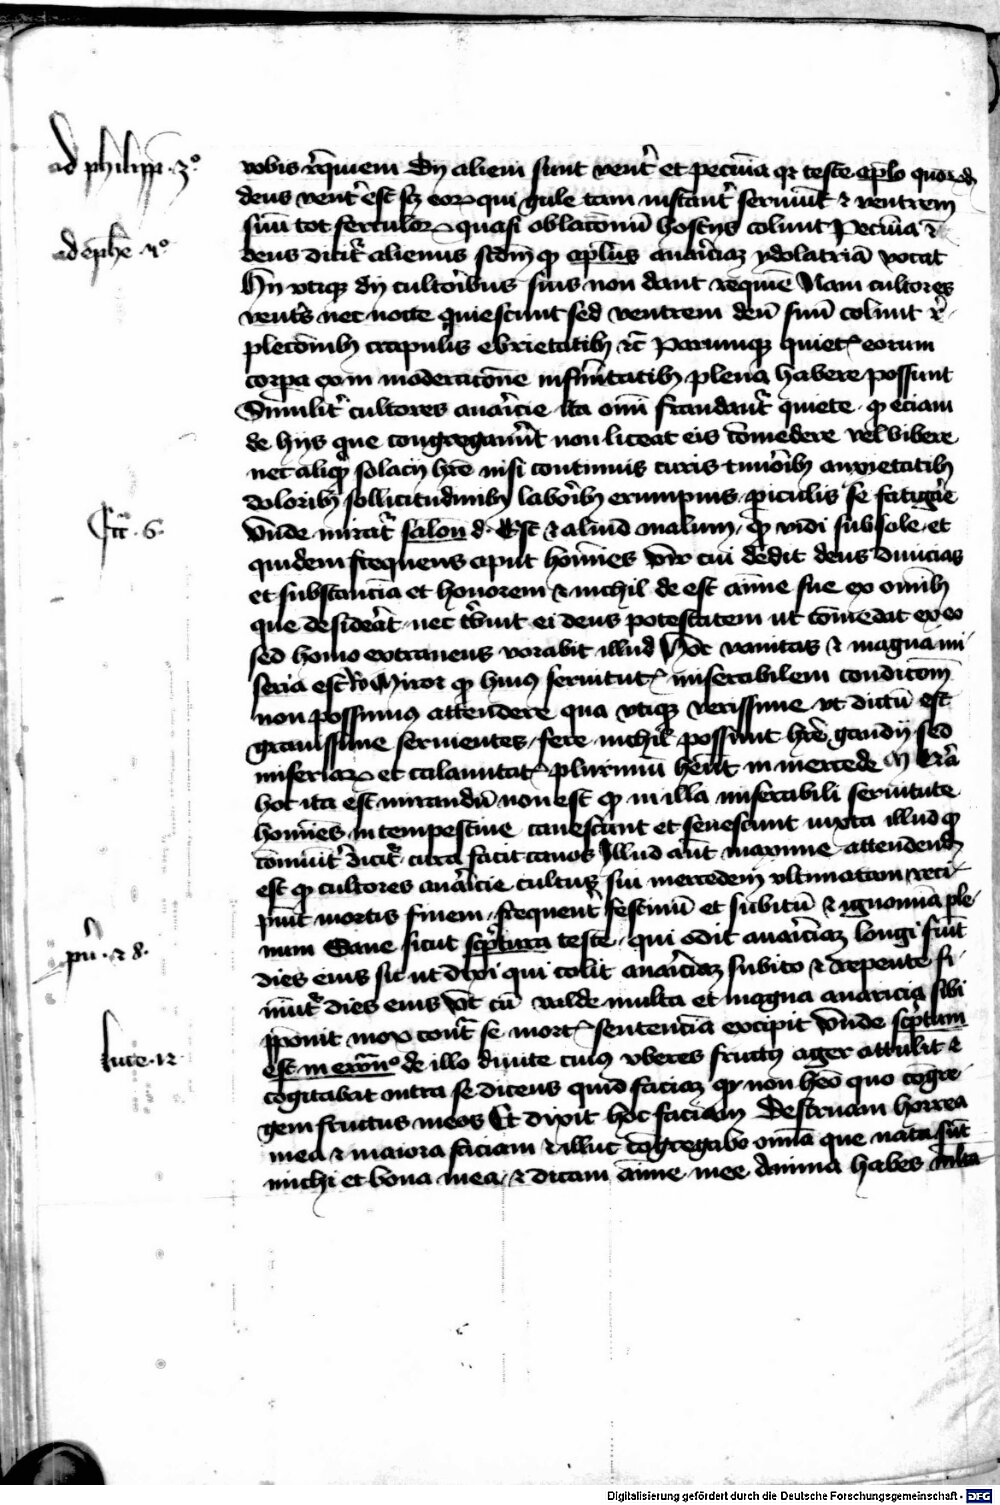 ad philipp. 3º
vobis req̄uiem Dij alieni sunt vent᷑ et pecūia qr̄ teste ap̄lo quor d
deus vent᷑ est scz eoꝝ qui gule tam instant᷑ seruiūt ⁊ ventrem
suū tot ferculoꝝ quasi oblatōnū hostijs colunt Pecūia ⁊
ad ephe. 4º
deus dicit᷑ alienus scdm qđ aplus auariciaz ydolatriā vocat
Hij vtiqꝫ dij cultorībus suis non dant requiē Nam cultores
vent᷑s nec nocte quiescunt sed ventrem deū suū colunt
pletōnibꝫ crapulis ebrietatibꝫ ⁊c̄ Parumqꝫ quiet᷑ eorum
corpa
moderatōne infir̄mitatibꝫ plena habere possunt
Similit᷑ cultores auar̄icie ita omī fraudant᷑ quiete qđ eciam
de hijs que congregauer̄t non liceat eis cōmedere vel bibere
nec aliqđ solacij hr̄e nisi continuis curis timor̄ibꝫ anxietatibꝫ
doloribꝫ sollicitudinibꝫ labor̄ibꝫ erumpnis piculis se fatigar̄e
Ecc̄. 6.
Vnde mirat᷑ salon d. Est ⁊ aliud malum qđ vidi sub sole et
quidem frequens aput homīes vir cui dedit deus diuicias
et substanciā et honorem ⁊ nichil deest aīme sue ex omībꝫ
que desiderat nec tribuit ei deus potestatem ut cōmedat ex eo
sed homo extraneus vorabit illud Hoc vanitas ⁊ magna mi
seria est Miror qđ huiꝰ seruitut᷑ miserabilem condicōnem
non possumus attendere qua vtiqꝫ verissime vt dictū est
grauissime seruientes fere nichil possunt hr̄e gaudij sed
miseriaꝝ et calamitat᷑ plurimū
in mercede
hoc ita est mirandū non est qđ in illa miserabili seruitute
homīes intempestiue canescunt et senescunt iuxta illud qđ
cōmunit᷑ dicit᷑ cura facit canos Illud aūt maxime attendendū
est qđ cultores auaricie cultus sui mercedem vltimatam reci
piūt mortis finem frequent᷑ festinū et subitū ⁊ ignominia ple
num Sane sicut sc̄ptura teste qui odit auariciaz longi fiūt
pu᷑. 28.
dies eius sic ut dixi qui colit auariciaz subito ⁊ repente fi
niūt᷑ dies eius Vt cū valde multa et magna auaricia sibi
pponit mox cont᷑ se mort᷑ sentenciā excipit Vnde sc̄ptum
luce. 12
est in ewāꝰ de illo diuite cuiꝰ vberes fructꝰ ager attulit ⁊
cogitabat intra se dicens quid faciaz qꝛ non heo quo cōgre
gem fructus meos Et dixit hoc faciam Destruam horrea
mea ⁊ maiora faciam ⁊ illuc cōgregabo omīa que nata sūt
michi et bona mea ⁊ dicam aīme mee Anima habes multa
Digitalisierung gefördert durch die Deutsche Forschungsgemeinschaft - DFG